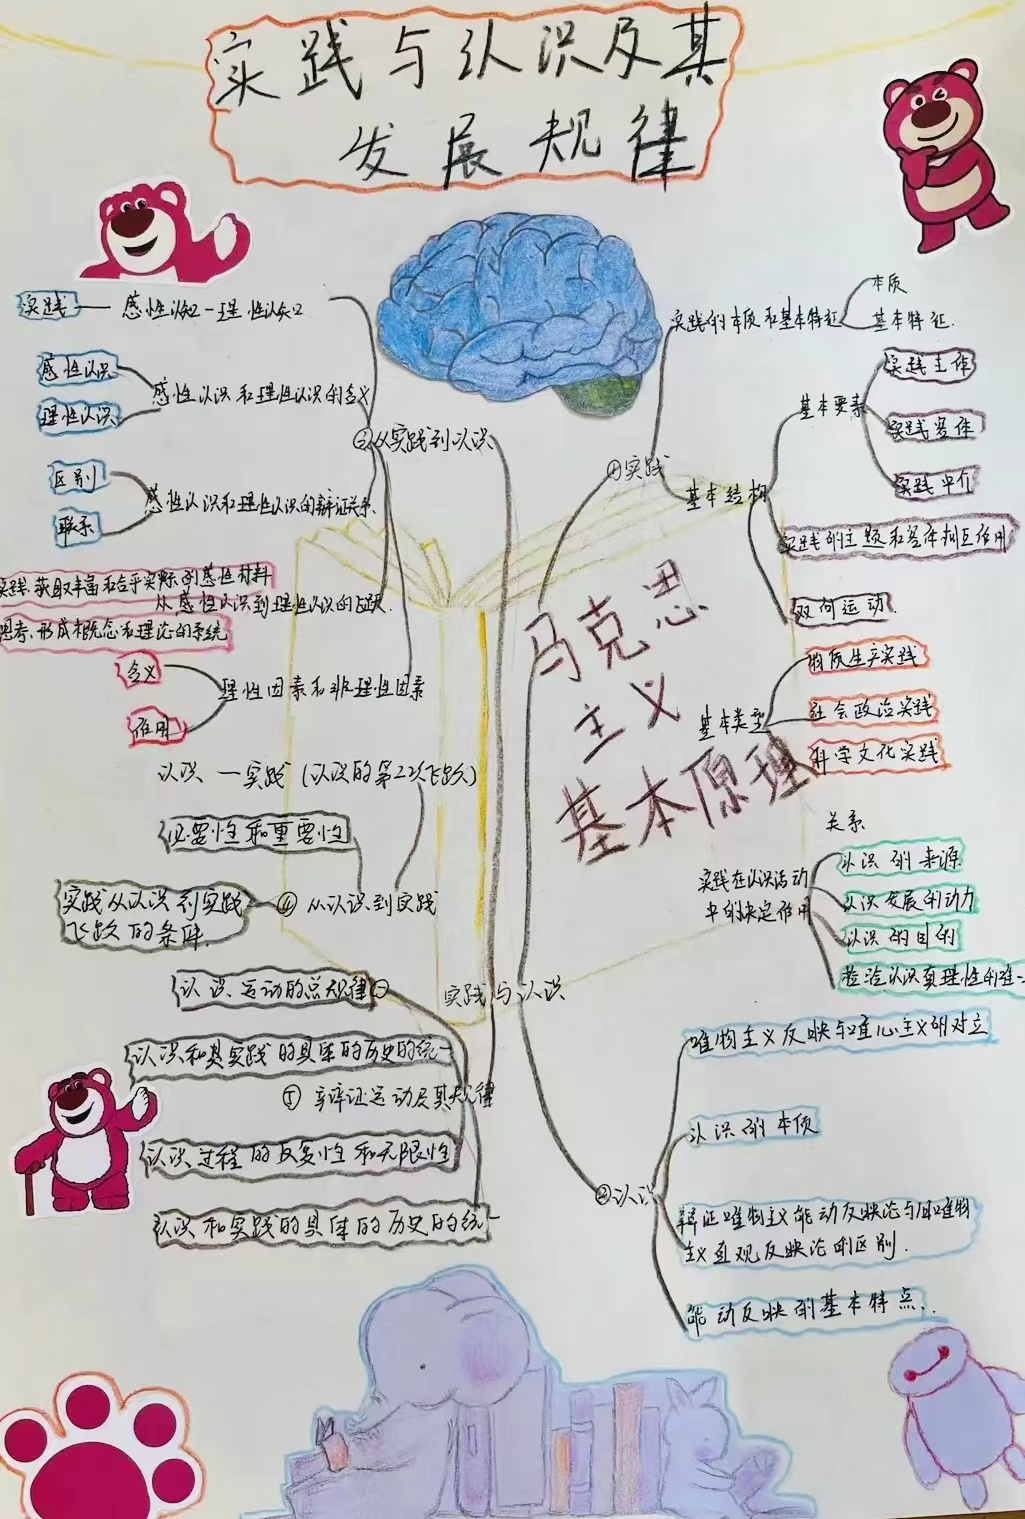 实践与认识及其
发展规律
实践
感性认知-理性认知
感性认识
理性认识
感性认识和理性认识的含义
③从实践到认识
区别
联系
感性认识和理性认识的辩证关系
实践、获取丰富和合乎实际的感性材料
从感性认识到理性认识的飞跃.
思考、形成概念和理论的系统
含义
作用
理性因素和非理性因素
认识-实践(认识的第2次飞跃)
必要性和重要性
实践从认识到实践
飞跃的条件.
④从认识到实践
认识运动的总规律
认识和其实践的具体的历史的统一
⑤辩证运动及其规律
认识过程的反复性和无限性
认识和实践的具体的历史的统一
实践与认识
马克思
主义
基本原理
①实践
实践的本质和基本特征
本质
基本特征.
基本结构
基本要素
实践主体
实践客体
实践中介
实践的主题和客体相互作用
双向运动.
基本类型
物质生产实践
社会政治实践
科学文化实践
实践在认识活动
中的决定作用
关系
认识的来源
认识发展的动力
认识的目的
检验认识真理性的唯一
②认识
唯物主义反映与唯心主义的对立
认识的本质
辩证唯物主义能动反映论与旧唯物
主义直观反映论的区别.
能动反映的基本特点..